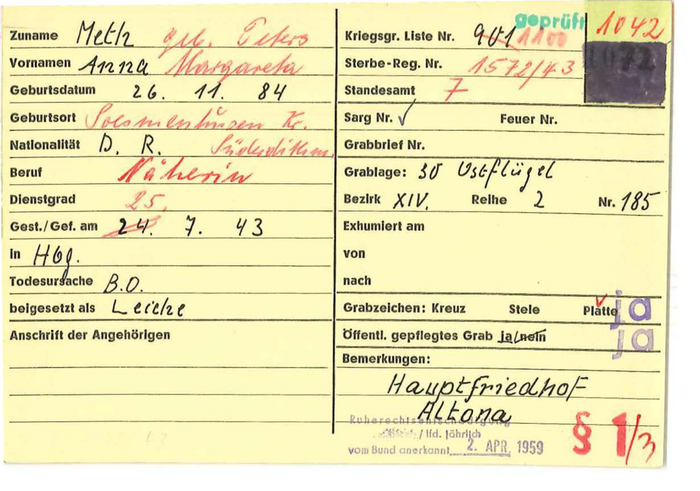 Zuname Meth geb. Peters
Vornamen Anna Margareta
Geburtsdatum 26. 11. 84
Geburtsort Kr.
Nationalität D. R. Süderdithm.
Beruf Näherin
Dienstgrad 25.
Gest./Gef. am 24. 7. 43
in Hbg.
Todesursache B.O.
beigesetzt als Leiche
Anschrift der Angehörigen
geprüft
1042
Kriegsgr. Liste Nr. 901 1100
1072
Sterbe-Reg. Nr. 1572/43
Standesamt 7
Sarg Nr. √ Feuer Nr.
Grabbrief Nr.
Grablage: 30 Ostflügel
Bezirk XIV. Reihe 2 Nr. 185
Exhumiert am
von
nach
Grabzeichen: Kreuz Stele Platte ja
Öffentl. gepflegtes Grab ja/nein ja
Bemerkungen:
Hauptfriedhof
Altona
Ruherechtsentschädigung
/ lfd. jährlich
vom Bund anerkannt 2. APR. 1959
§ 1/3